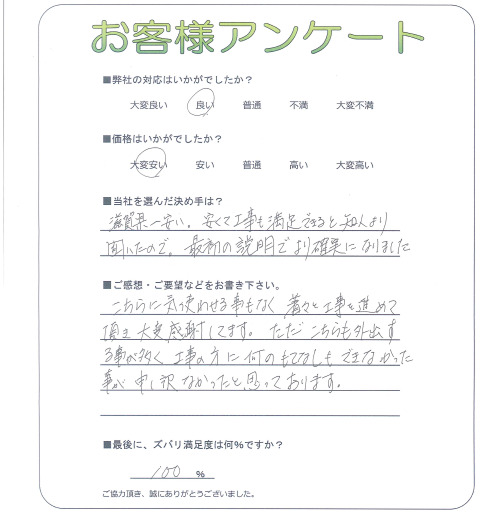 お客様アンケート
■弊社の対応はいかがでしたか？
大変良い 良い 普通 不満 大変不満
■価格はいかがでしたか？
大変安い 安い 普通 高い 大変高い
■当社を選んだ決め手は？
滋賀県一安い。安くて工事も満足できると知人より
聞いたので。最初の説明でより確実になりました
■ご感想・ご要望などをお書き下さい。
こちらに気使わせる事もなく 着々と工事を進めて
頂き 大変感謝してます。ただ こちらも外出す
る事が多く 工事の方に何のもてなしもできなかった
事が申し訳なかったと思っております。
■最後に、ズバリ満足度は何%ですか？
100 %
ご協力頂き、誠にありがとうございました。